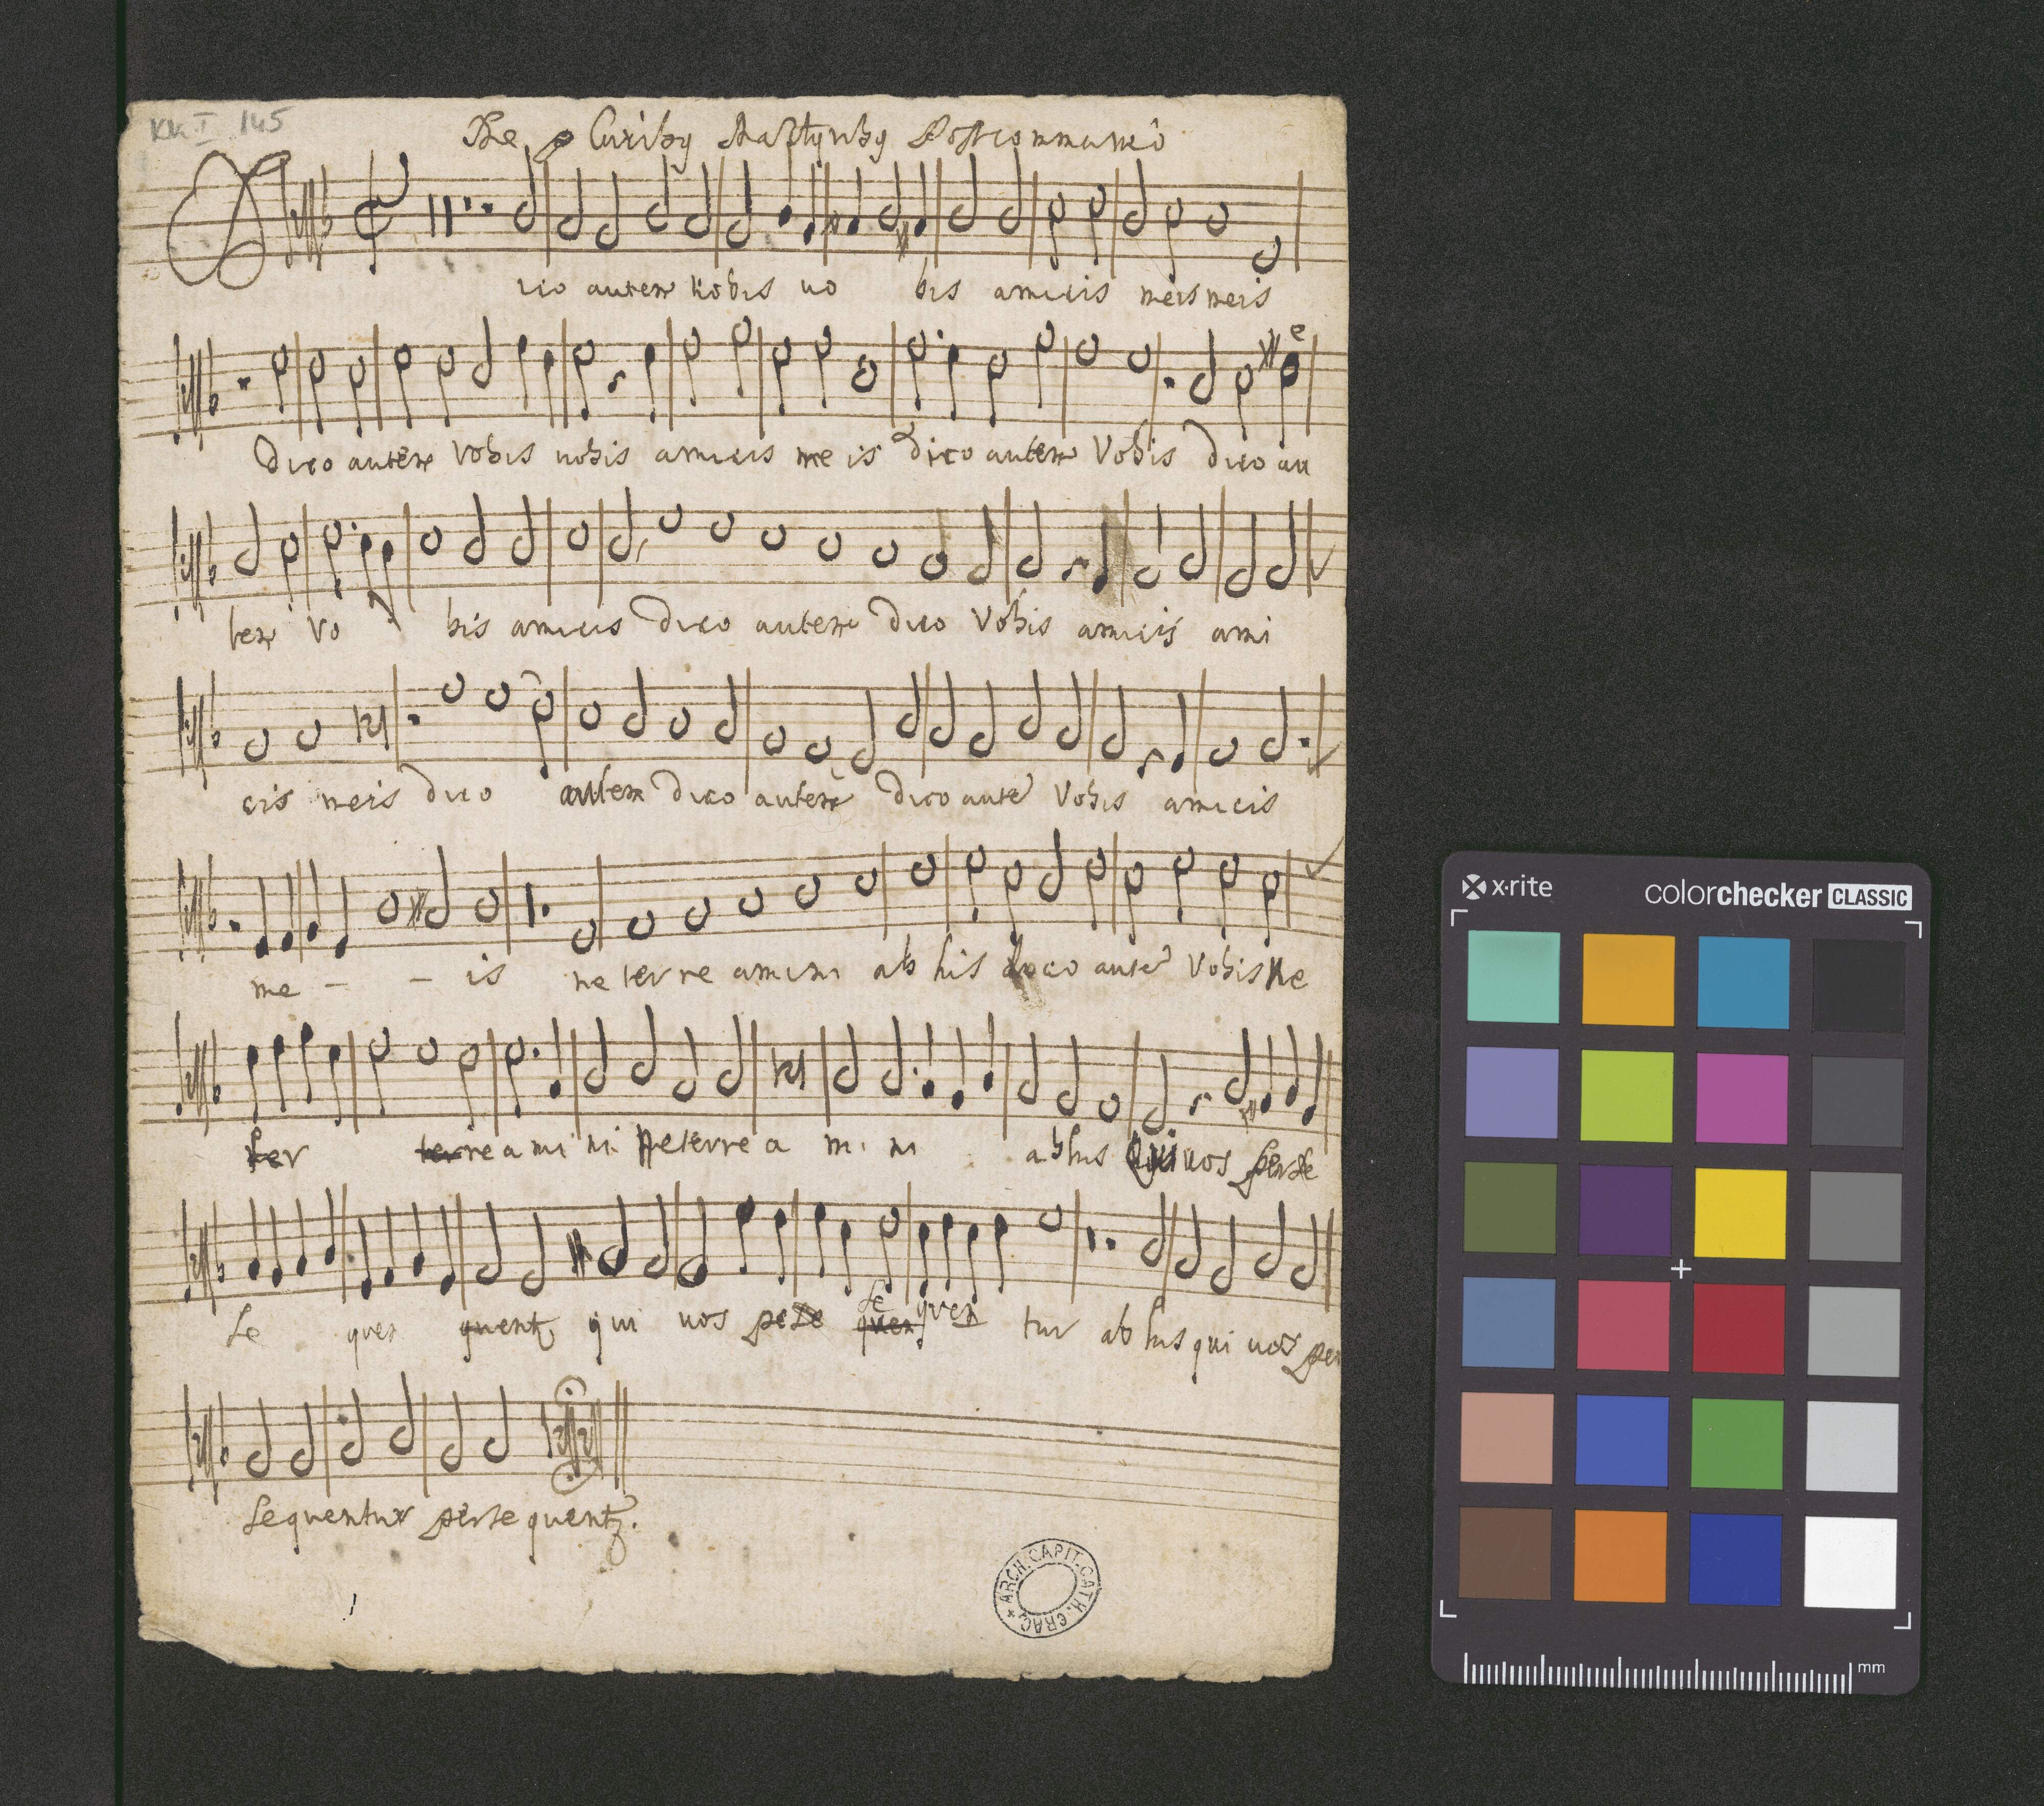 KK I 145
D ico autem vobis vo bis amicis meis meis
Dico autem Vobis vobis amicis me is dico autem Vobis dico au
tem Vo bis amicis dico autem dico Vobis amicis ami
cis meis dico autem dico autem dico aute Vobis amicis
me - - is ne terre amini ab his dico aute Vobis Ne
ter terre a mi ni Ne terre a mi ni ab his Qui vos perse
se quen quent qui vos perse se quen quen tur ab his qui vos per
sequentur perse quent.
ARCH. CAPIT. CATH. CRAC.
x·rite
colorchecker CLASSIC
mm